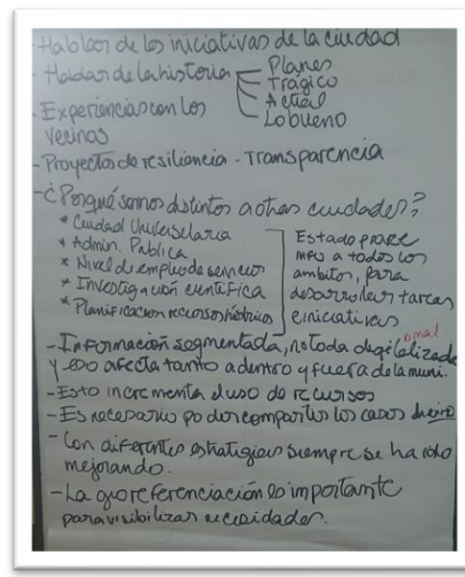 - Hablar de las iniciativas de la ciudad
- Hablar de la historia
Planes
Trágico
Actual
Lo bueno
- Experiencias con los
vecinos
- Proyectos de resiliencia - Transparencia
- ¿Porqué somos distintos a otras ciudades?
* Ciudad Universitaria
* Admin. Publica
* Nivel de empleo de servicios
* Investigación científica
* Planificacion recursos hídricos
Estado
a todos los
ambitos, para
desarrollar tareas
e iniciativas
- Información segmentada, no toda digitalizada
o mal
y eso afecta tanto adentro y fuera de la muni.
- Esto incrementa el uso de recursos
- Es necesario poder compartir los casos de éxito
- Con diferentes estrategias siempre se ha ido
mejorando.
- La georeferenciación es importante
para visibilizar necesidades.